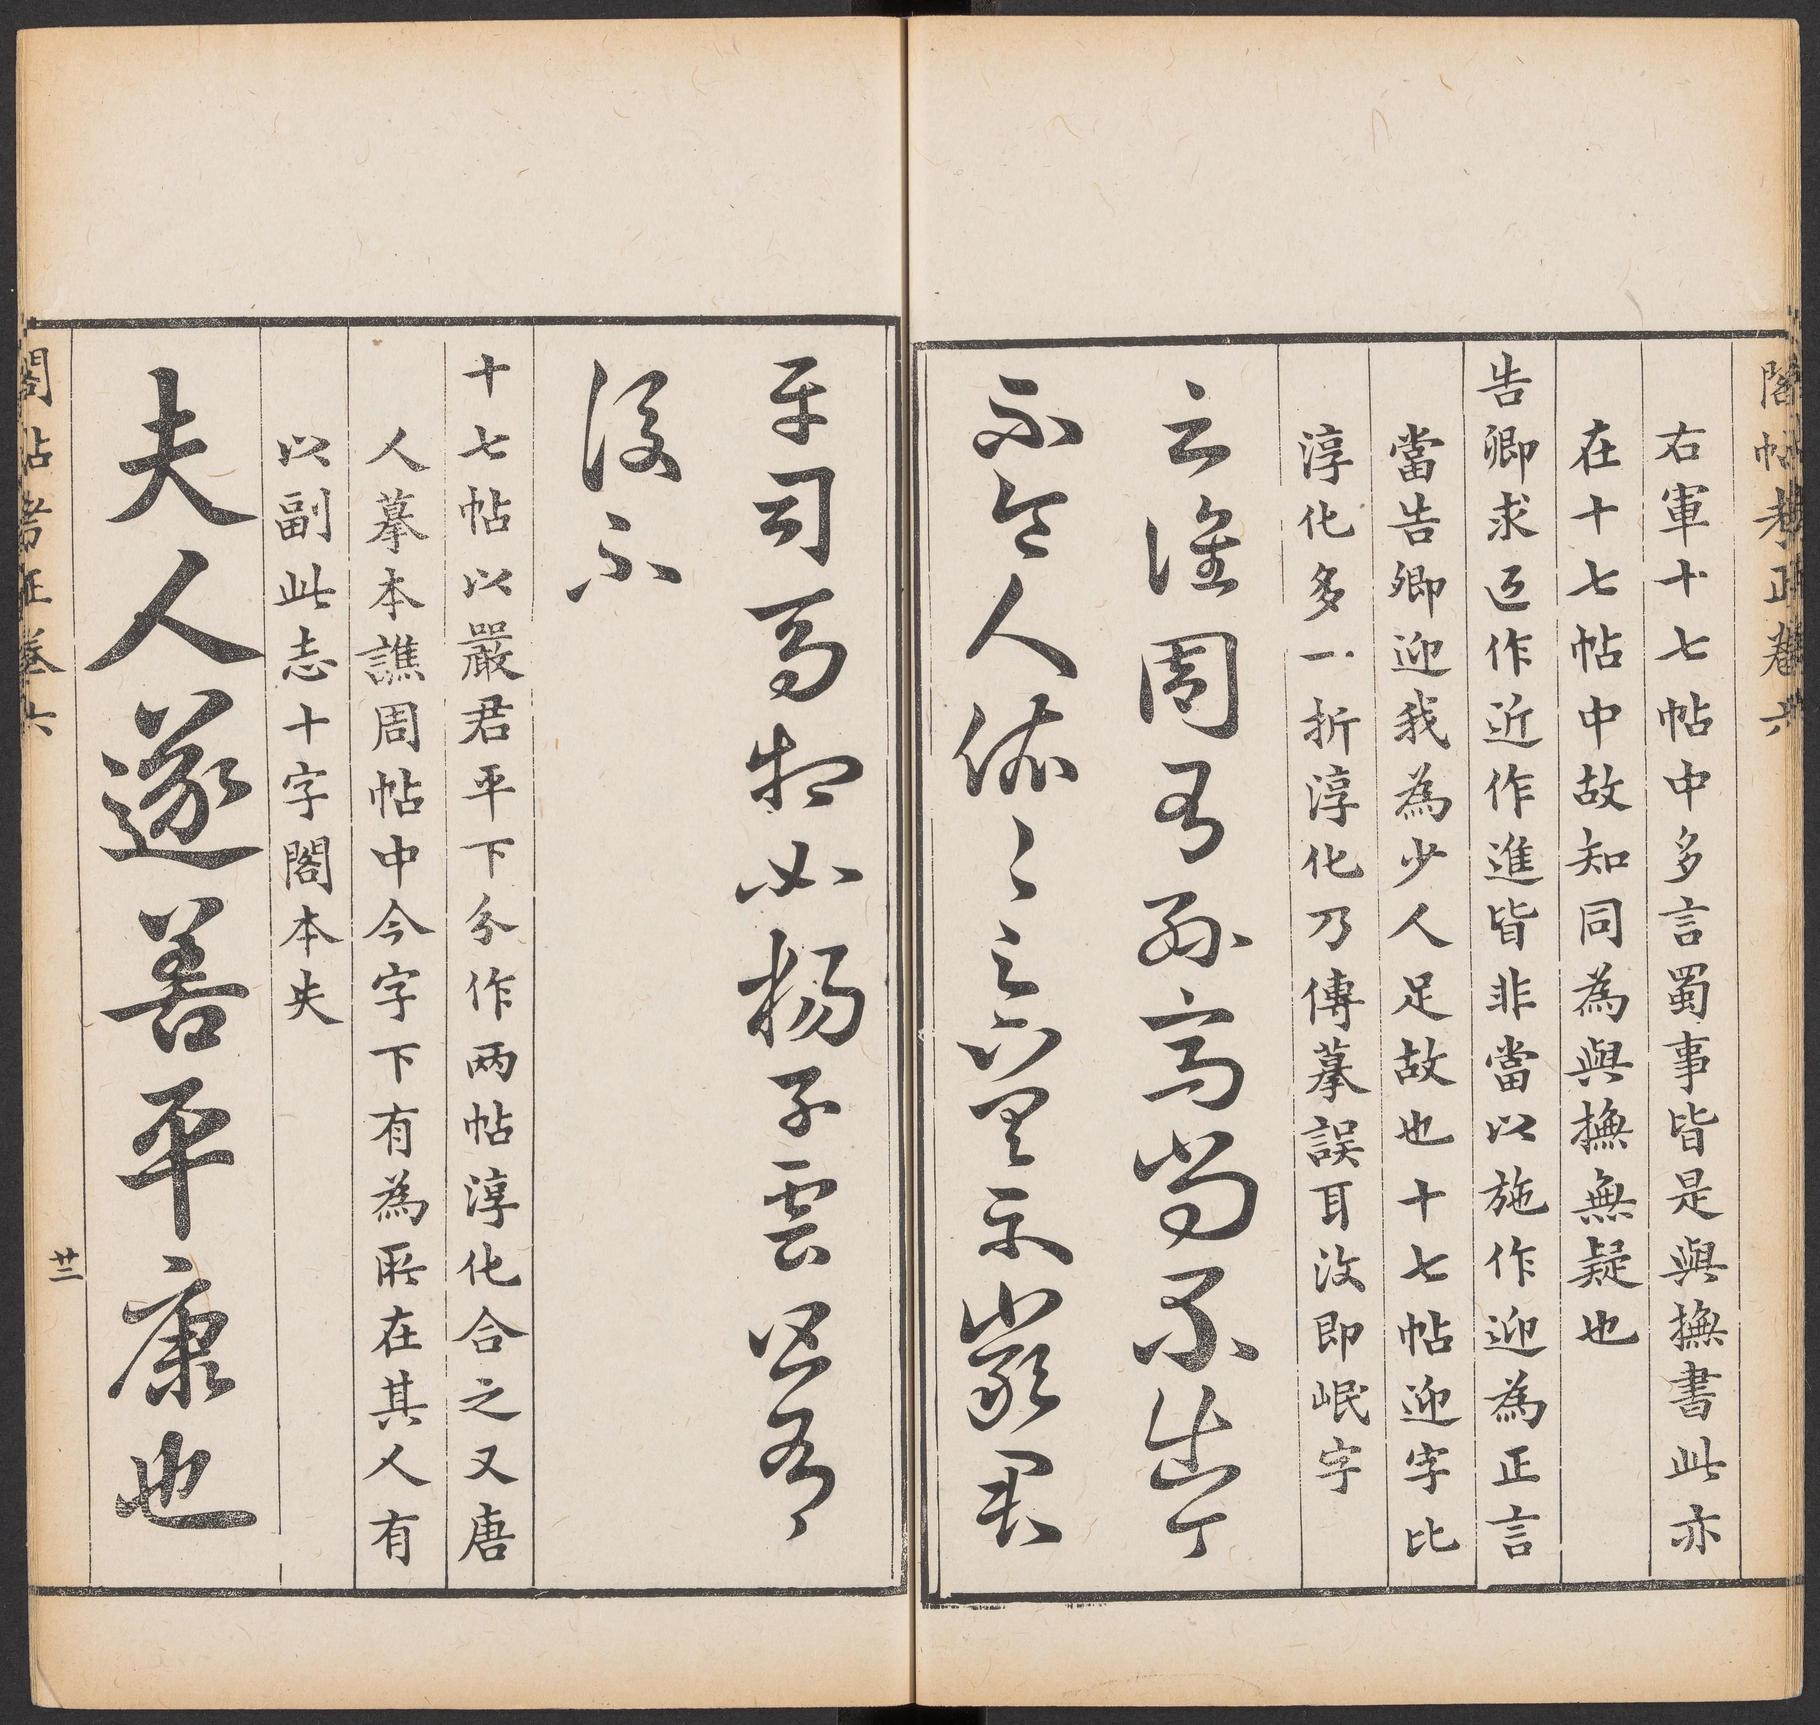 閣帖考正卷六
右軍十七帖中多言蜀事皆是與撫書此亦
在十七帖中故知同為與撫無疑也
告卿求迊作近作進皆非當以施作迎為正言
當告卿迎我為少人足故也十七帖迎字比
淳化多一折淳化乃傳摹誤耳汶即岷字
云譙周有孫高尚不出今
不令人依依足下具示嚴君
平司馬相如楊子雲皆有
後不
十七帖以嚴君平下分作兩帖淳化合之又唐
人摹本譙周帖中今字下有為所在其人有
以副此志十字閣本失
夫人遂善平康也
閣帖考正卷六
廿三